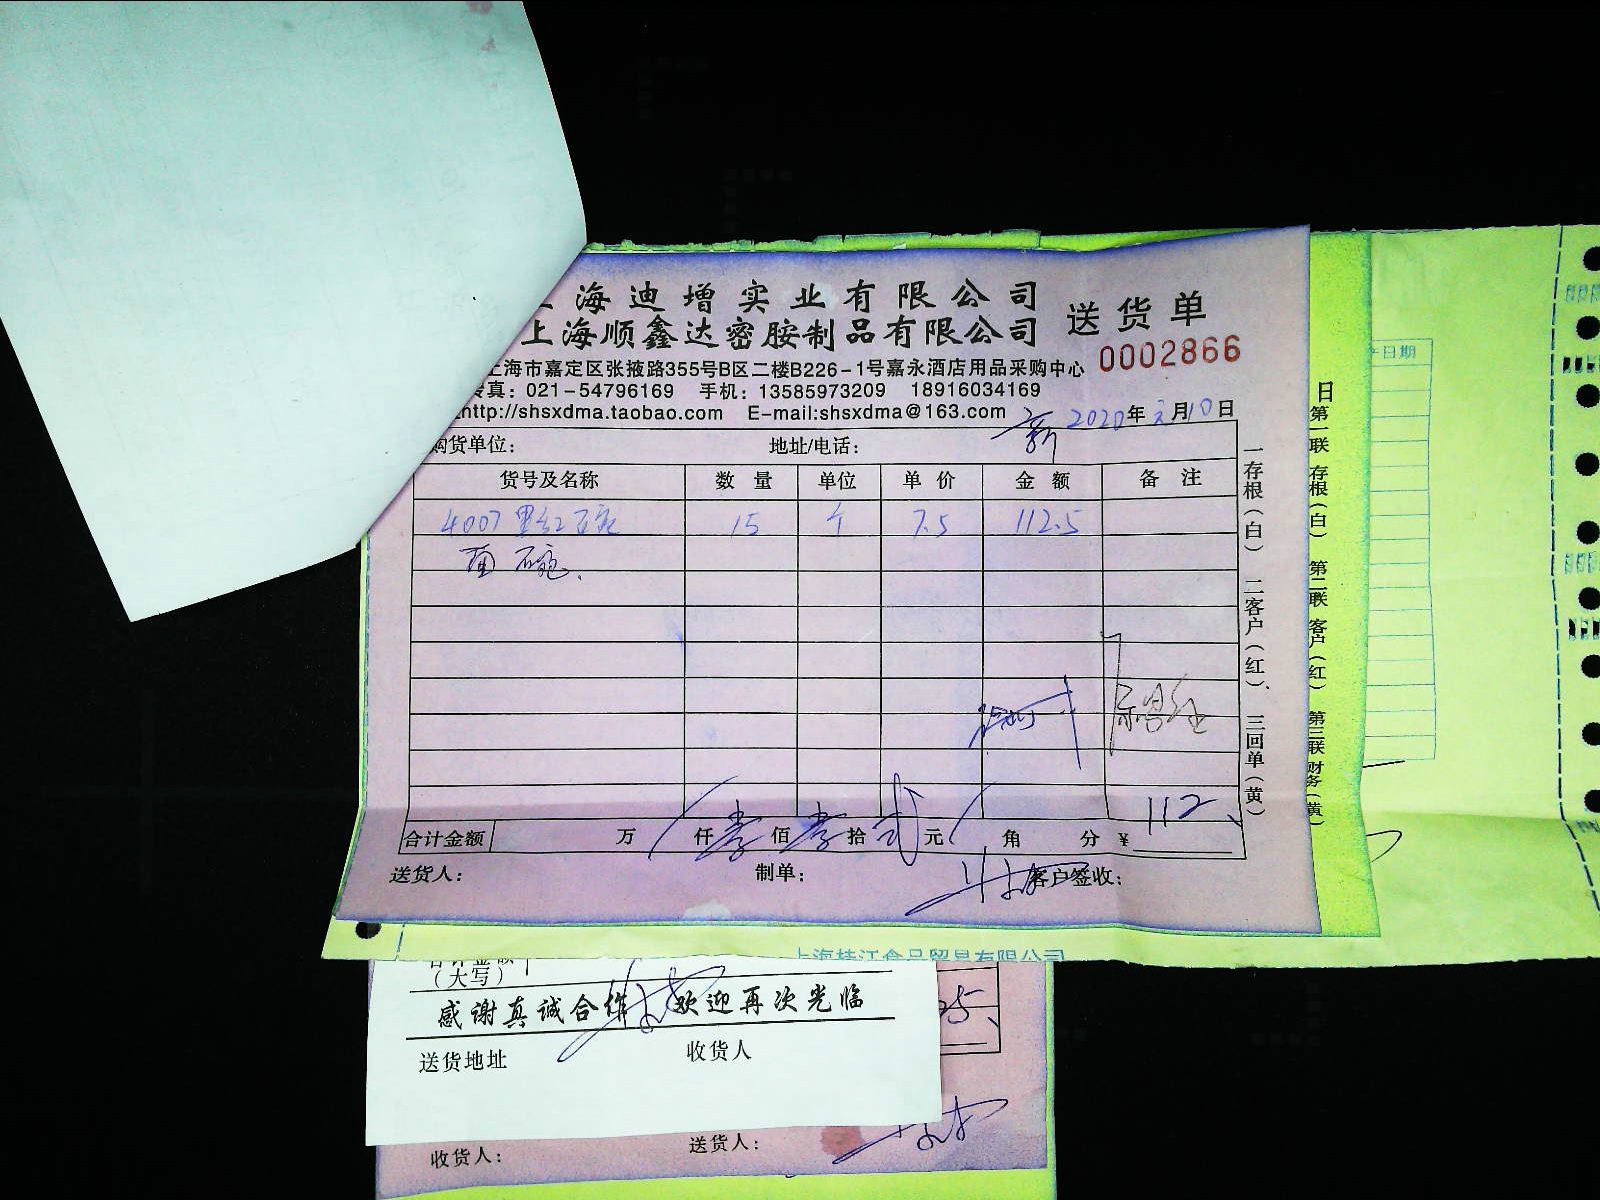 海迪增实业有限公司
上海顺鑫达密胺制品有限公司
送货单
0002866
上海市嘉定区张掖路355号B区二楼B226-1号嘉永酒店用品采购中心
传真：021-54796169 手机：13585973209 18916034169
http://shsxdma.taobao.com E-mail:shsxdma@163.com
2020年 月10日
购货单位： 地址/电话：
货号及名称 数量 单位 单价 金额 备注
4007 黑红碗 15 个 7.5 112.5
面碗
合计金额 万 仟 壹 佰 壹 拾 贰 元 角 分 ¥ 112
送货人： 制单： 客户签收：
一存根（白） 二客户（红） 三回单（黄）
日
第一联 存根（白） 第二联 客户（红） 第三联 财务（黄）
日期
上海桂江食品贸易有限公司
（大写）
感谢真诚合作 欢迎再次光临
送货地址 收货人
收货人： 送货人：